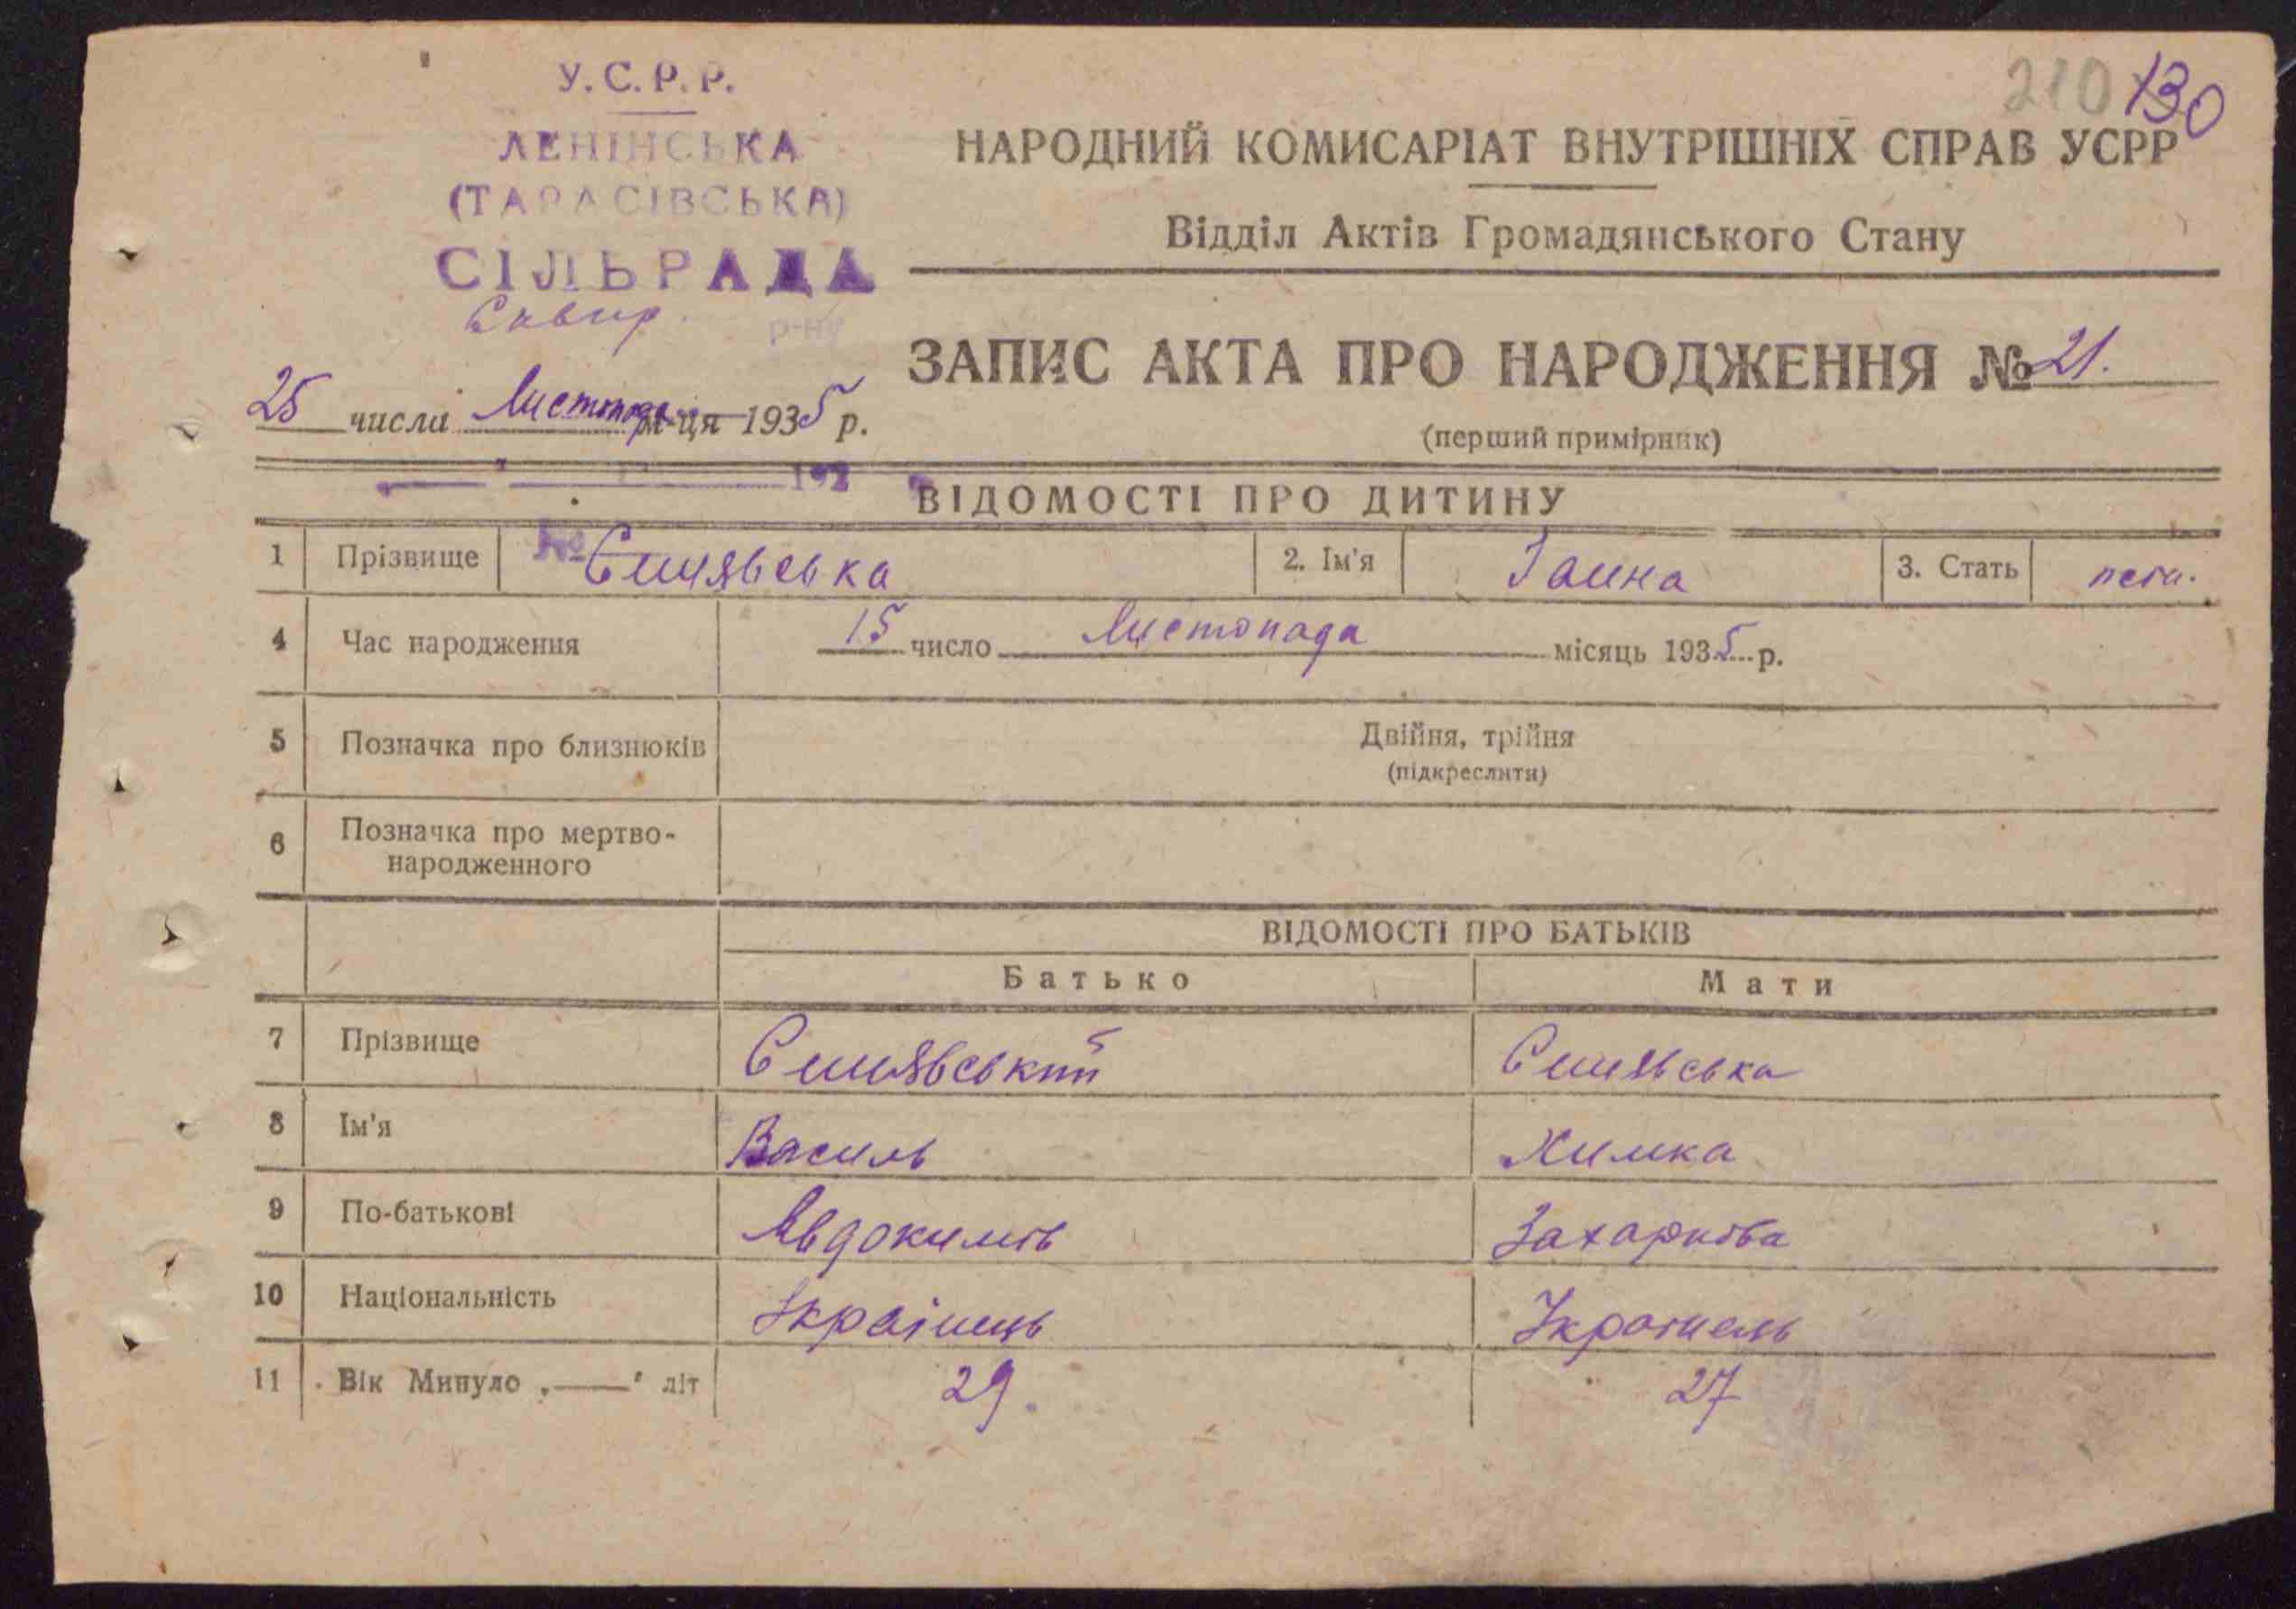 210 130
У.С.Р.Р.
ЛЕНІНСЬКА
(ТАРАСІВСЬКА)
СІЛЬРАДА
Сквир. р-ну
НАРОДНИЙ КОМИСАРІАТ ВНУТРІШНІХ СПРАВ УСРР
Відділ Актів Громадянського Стану
ЗАПИС АКТА ПРО НАРОДЖЕННЯ № 21.
(перший примірник)
25 числа Листопада м-ця 1935 р.
192
ВІДОМОСТІ ПРО ДИТИНУ
№
1 Прізвище Синявська 2. Ім'я Ганна 3. Стать
4 Час народження 15 число Листопада місяць 1935 р.
5 Позначка про близнюків Двійня, трійня
(підкреслити)
6 Позначка про мертво-
народженного
ВІДОМОСТІ ПРО БАТЬКІВ
Батько Мати
7 Прізвище Синявський Синявська
8 Ім'я Василь Химка
9 По-батькові Явдокимів Захаркова
10 Національність Українець
11 Вік Минуло „—" літ 29. 27